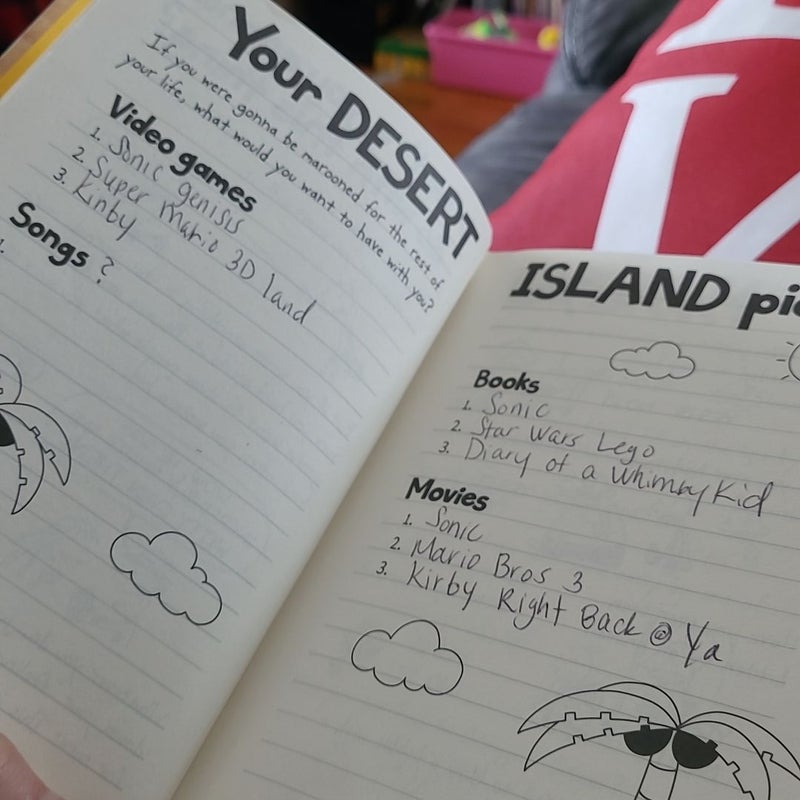 Your DESERT
If you were gonna be marooned for the rest of
your life, what would you want to have with you?
Video games
1. Sonic genisis
2. Super Mario 3D land
3. Kinby
Songs ?
1.
ISLAND pic
Books
1. Sonic
2. Star Wars Lego
3. Diary of a Whimpy Kid
Movies
1. Sonic
2. Mario Bros 3
3. Kirby Right Back @ Ya